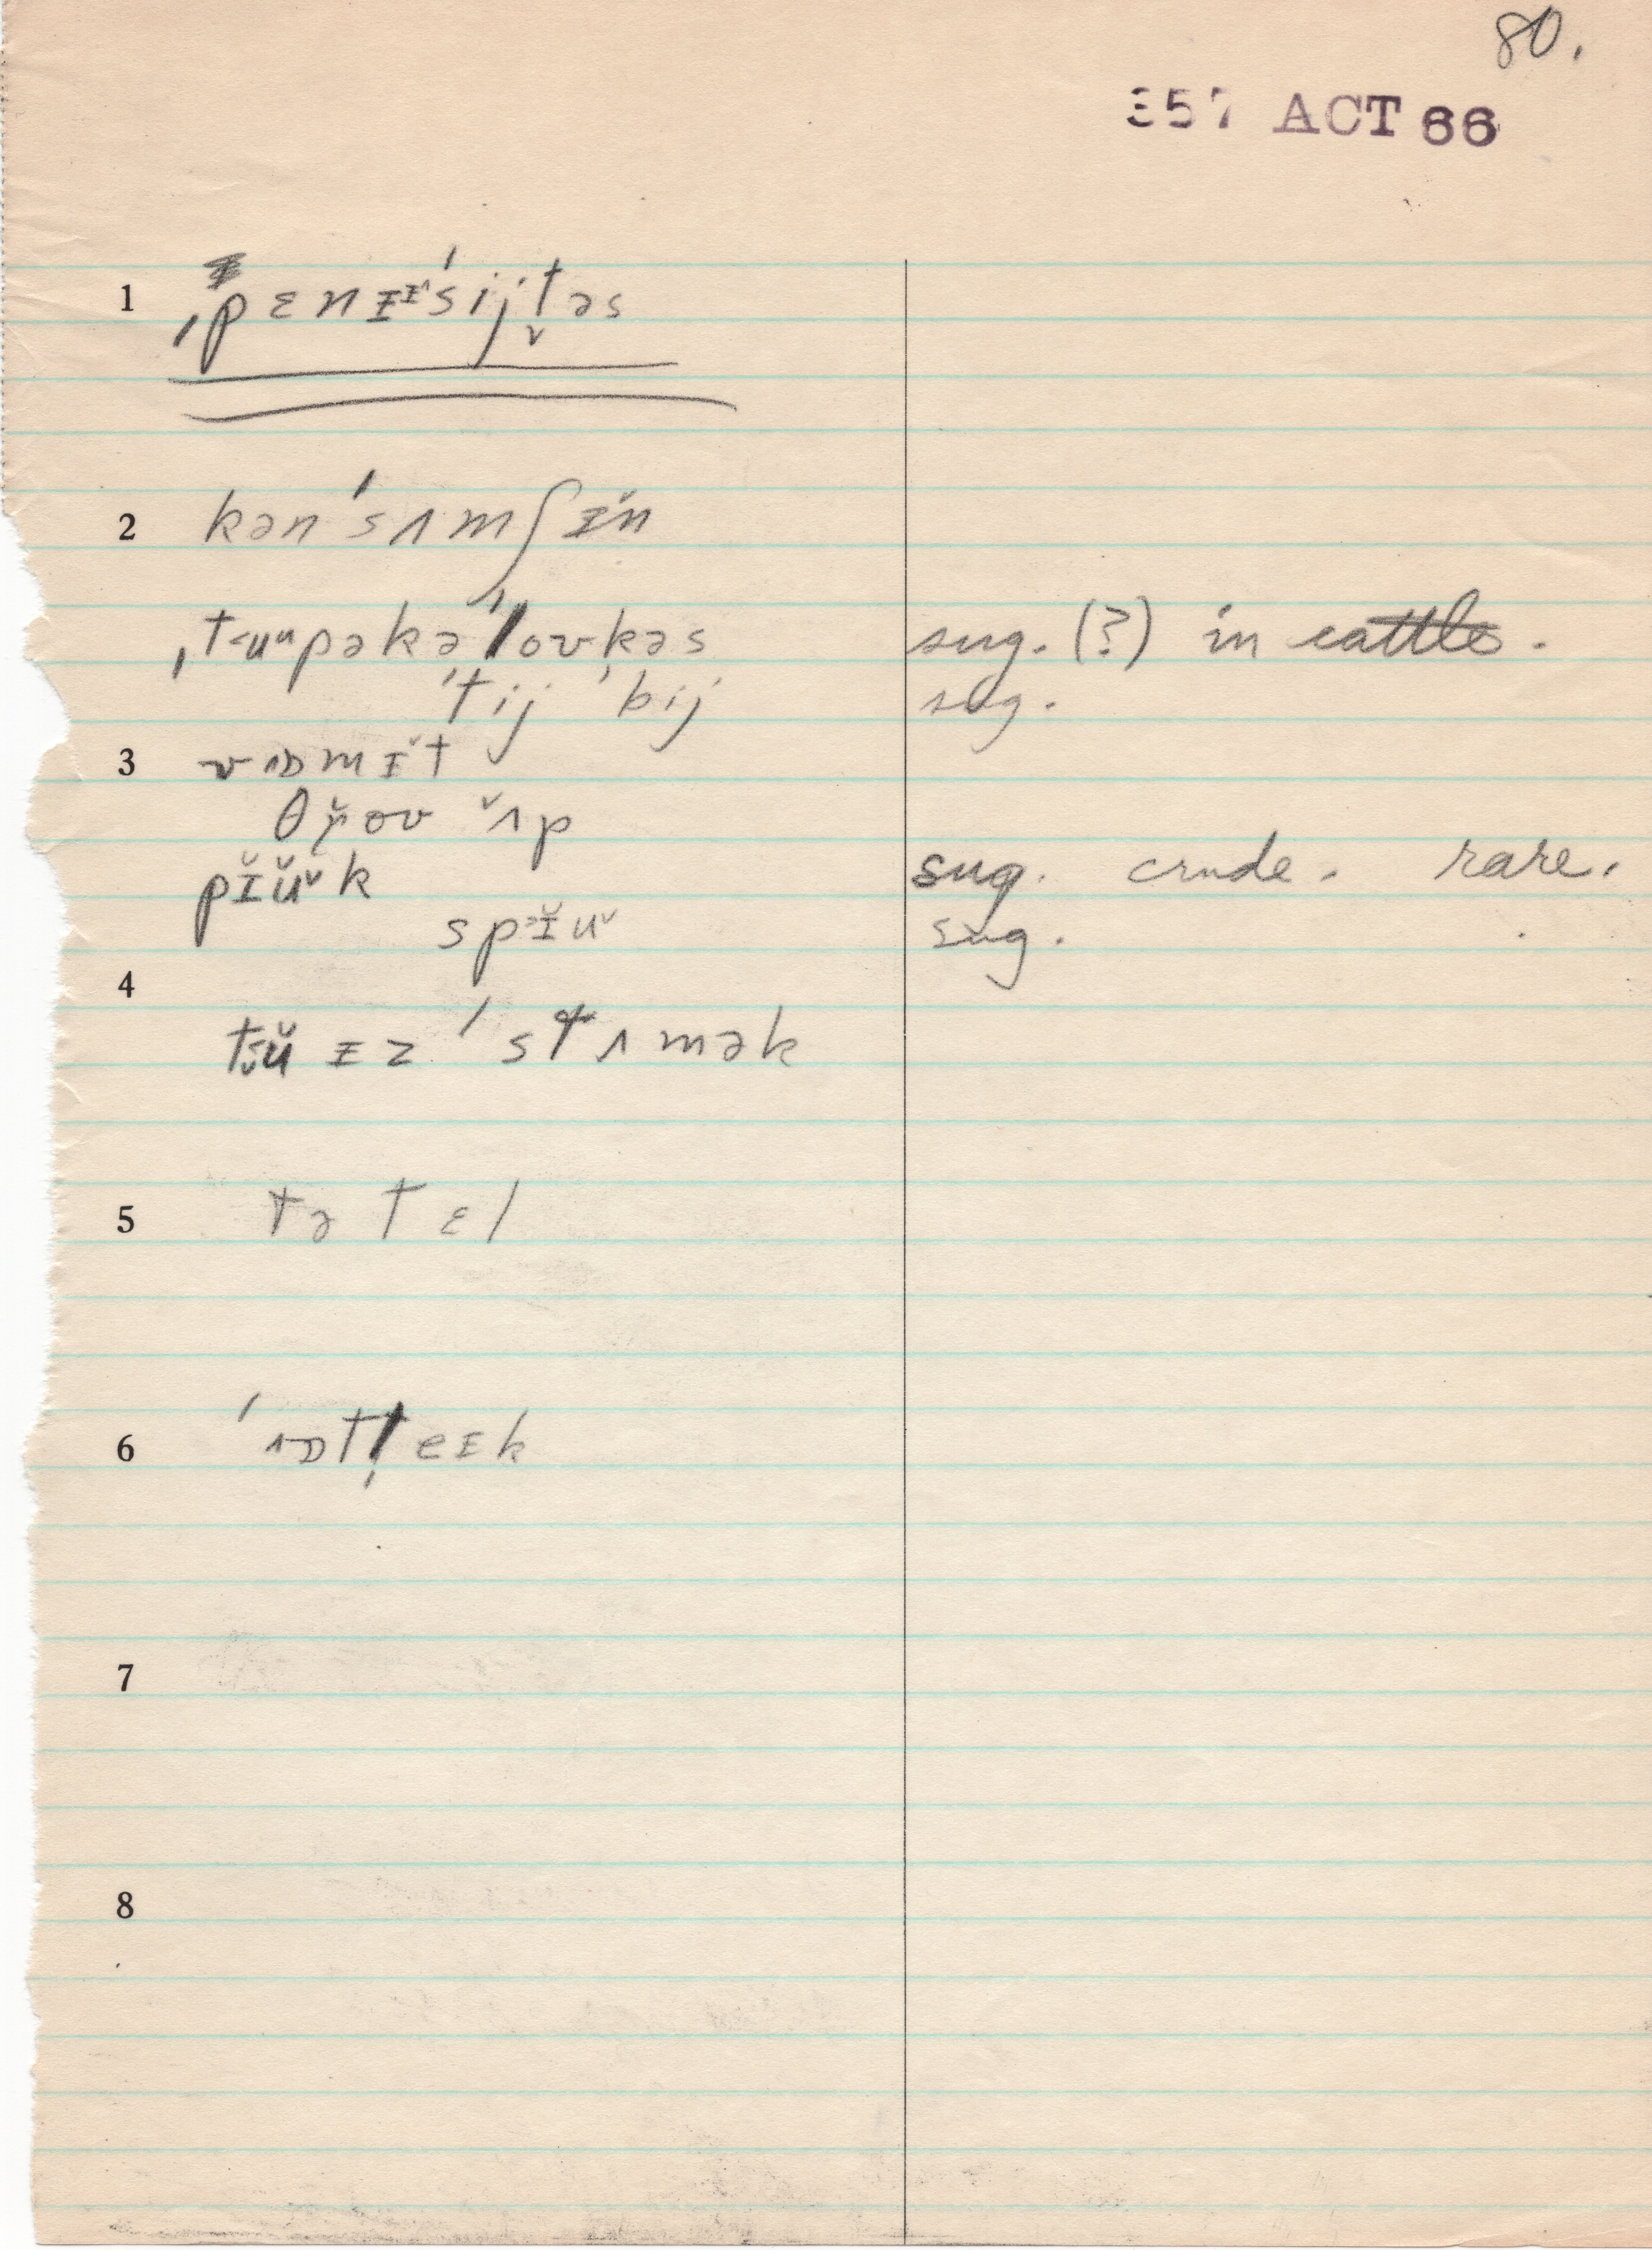 80.
357 ACT 66
1 ˌpɛnɪɪˈsijt̬əs
2 kənˈsʌmʃɪ̆n
ˌtʉupəkəˈloʊkəs sug. (?) in cattle.
ˈtijˈbij sug.
3 vɒmɪ̆t
θr̆oʊ ʌ̆p
pɪ̆ŭk sug. crude. rare.
spɪ̆u sug.
4
tʉ̆ ɪz ˈstʌmək
5 tə tɛl
6 ˈɒtəeɪk
7
8